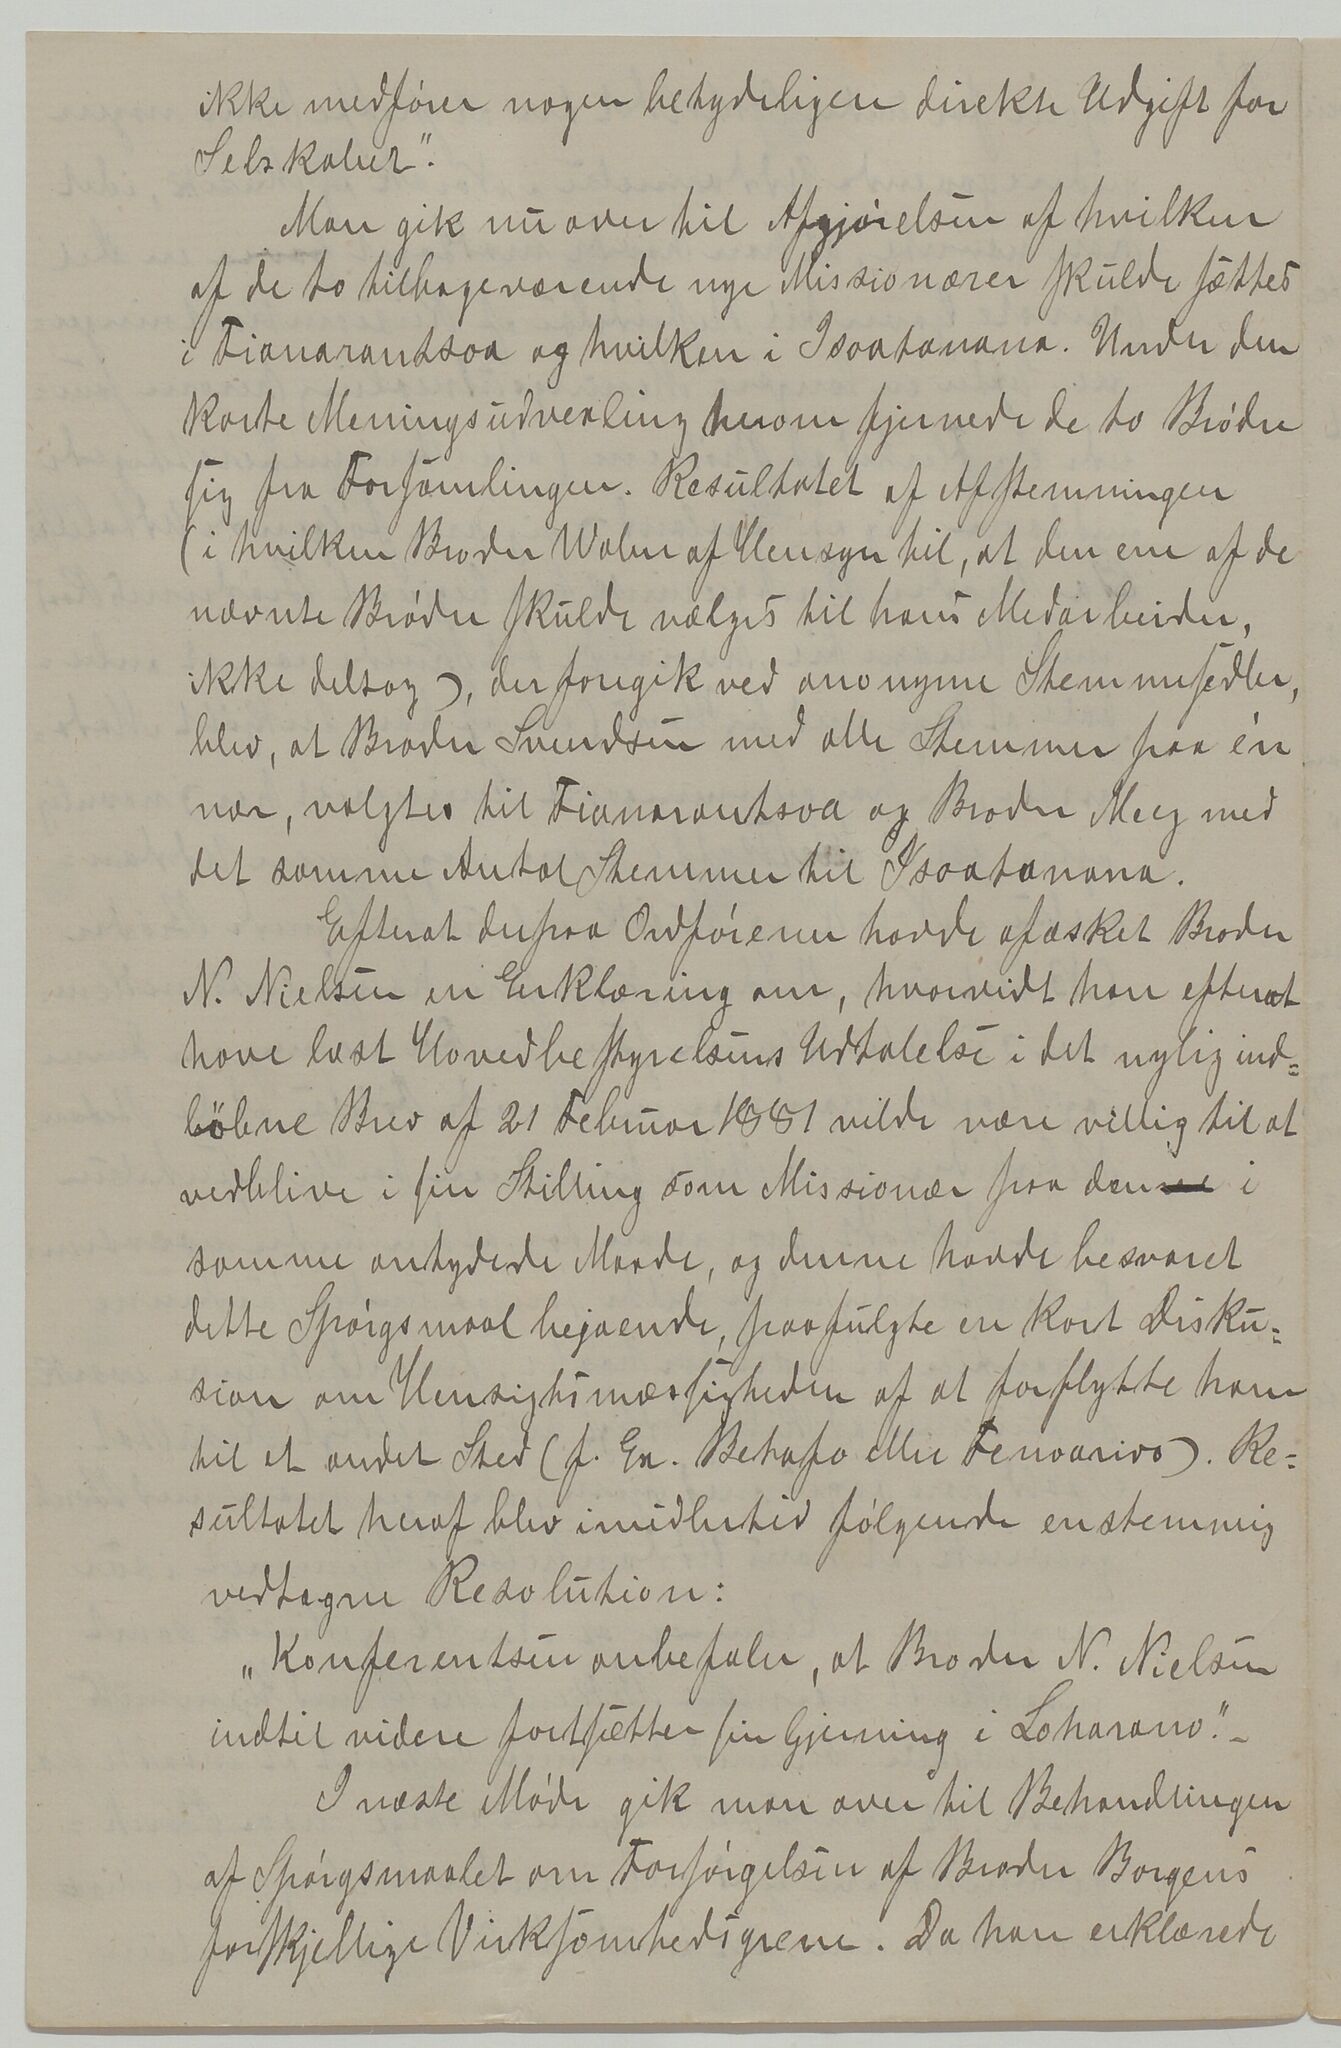 ikke medfører nogen betydeligere direkte Udgift for
Selskabet".
Man gik nu over til Afgjørelsen af hvilken
af de to tilbageværende nye Missionærer skulde sættes
i Fianarantsoa og hvilken i Isoatanana. Under den
korte Meningsudvexling herom fjernede de to Brødre
sig fra Forsamlingen. Resultatet af Afstemningen
(i hvilken Broder Walen af Hensyn til, at den ene af de
nævnte Brødre skulde vælges til hans Medarbeider,
ikke deltog), der foregik ved anonyme Stemmesedler,
blev, at Broder Svendsen med alle Stemmer paa én
nær, valgtes til Fianarantsoa og Broder Meeg med
det samme Antal Stemmer til Isoatanana.
Efterat derpaa Ordføreren havde afæsket Broder
N. Nielsen en Erklæring om, hvorvidt han efterat
have læst Hovedbestyrelsens Udtalelse i det nylig ind=
løbne Brev af 21 Februar 1881 vilde være villig til at
vedblive i sin Stilling som Missionær paa den i
samme antydede Maade, og denne havde besvaret
dette Spørgsmaal bejaende, paafulgte en kort Disku=
sion om Hensigtsmæssigheden af at forflytte ham
til et andet Sted (f. Ex. Betafo eller Fenoarivo). Re=
sultatet heraf blev imidlertid følgende enstemmig
vedtagne Resolution:
„Konferentsen anbefaler, at Broder N. Nielsen
indtil videre fortsætter sin Gjerning i Loharano". –
I næste Møde gik man over til Behandlingen
af Spørgsmaalet om Forsørgelsen af Broder Borgens
forskjellige Virksomhedsgrene. Da han erklærede